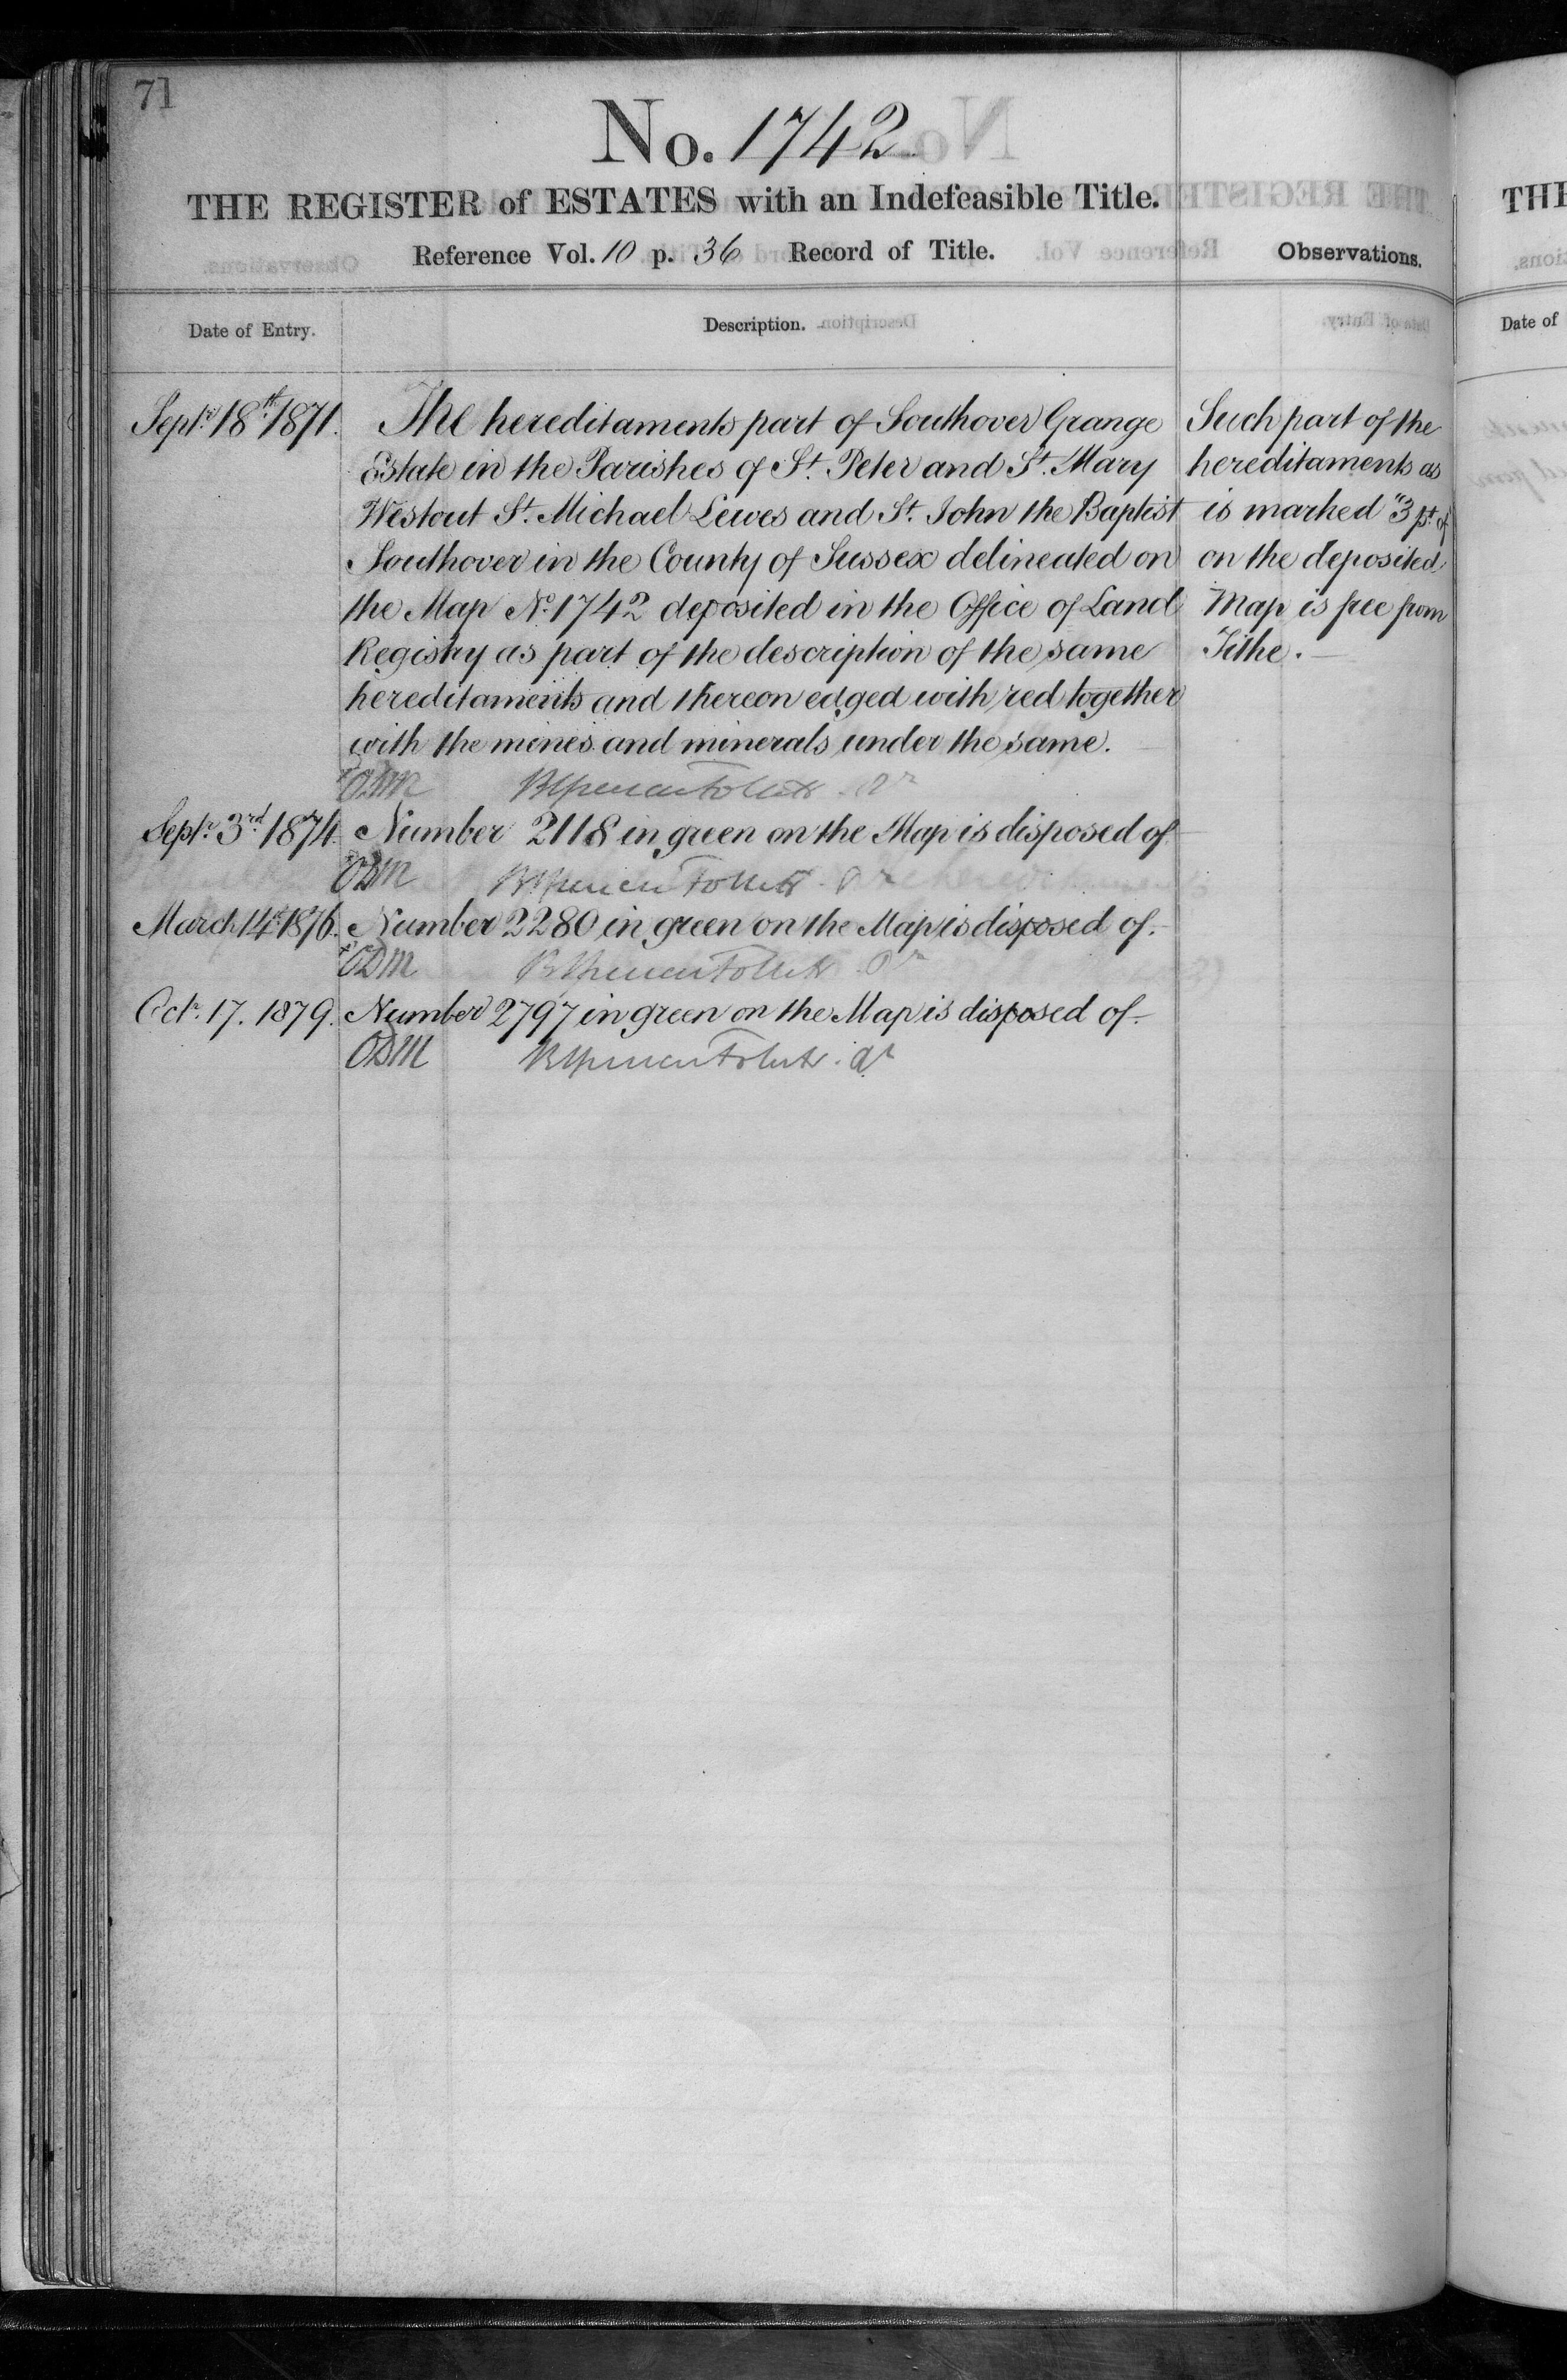 71
No. 1742
THE REGISTER of ESTATES with an Indefeasible Title.
Reference Vol. 10 p. 36 Record of Title.
Observations.
Date of Entry.
Description.
Septr. 18th. 1871.
The hereditaments part of Southover Grange
Estate in the Parishes of St. Peter and St. Mary
Westout St. Michael Lewes and St. John the Baptist
Southover in the County of Sussex delineated on
the Map No. 1742 deposited in the Office of Land
Registry as part of the description of the same
hereditaments and thereon edged with red together
with the mines and minerals under the same.
Such part of the
hereditaments as
is marked "3 pt. of
on the deposited
Map is free from
Tithe.
ODM
Septr. 3rd. 1874.
Number 2118 in green on the Map is disposed of.
ODM
March 14th. 1876.
Number 2280 in green on the Map is disposed of.
ODM
Octr. 17. 1879.
Number 2797 in green on the Map is disposed of.
ODM
THE
Date of